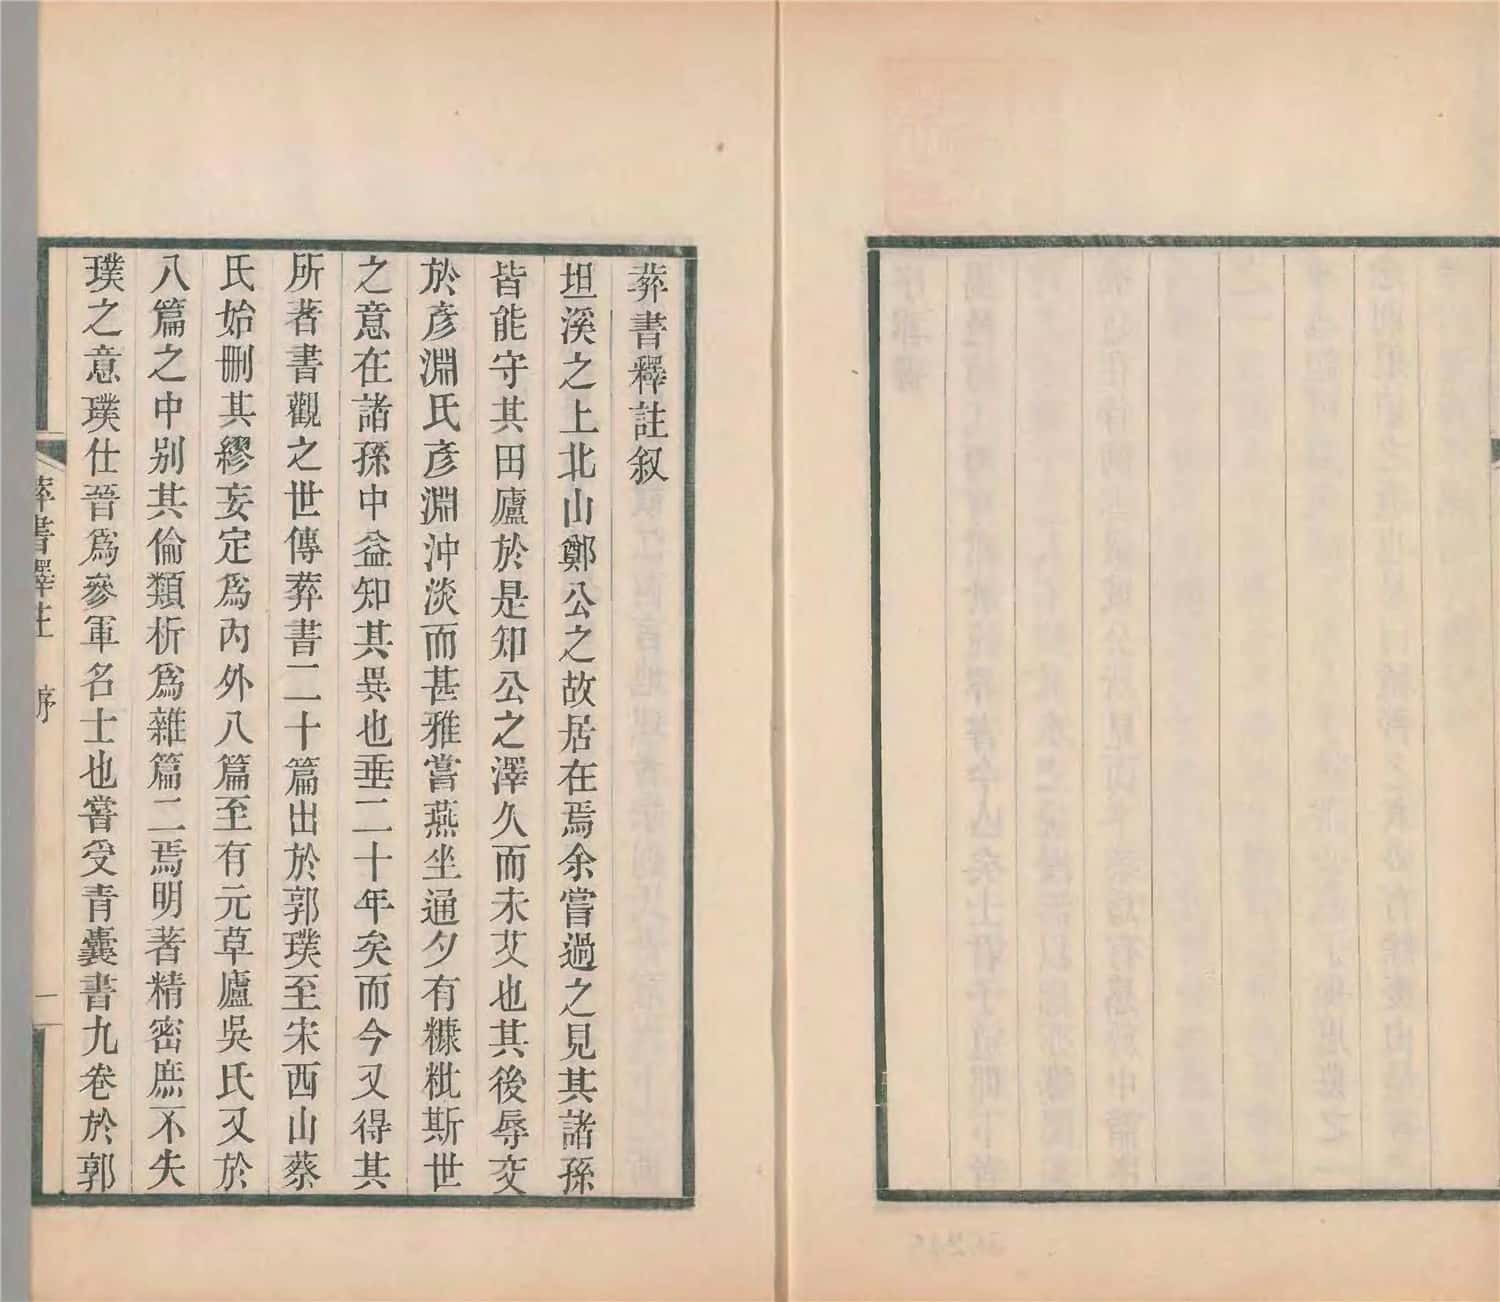 葬書釋註叙
坦溪之上北山鄭公之故居在焉余嘗過之見其諸孫
皆能守其田廬於是知公之澤久而未艾也其後辱交
於彥淵氏彥淵沖淡而甚雅嘗燕坐通夕有糠粃斯世
之意在諸孫中益知其異也垂二十年矣而今又得其
所著書觀之世傳葬書二十篇出於郭璞至宋西山蔡
氏始刪其繆妄定爲內外八篇至有元草廬吳氏又於
八篇之中別其倫類析爲雜篇二焉明著精密庶不失
璞之意璞仕晉爲參軍名士也嘗受青囊書九卷於郭
葬書釋註 序 一